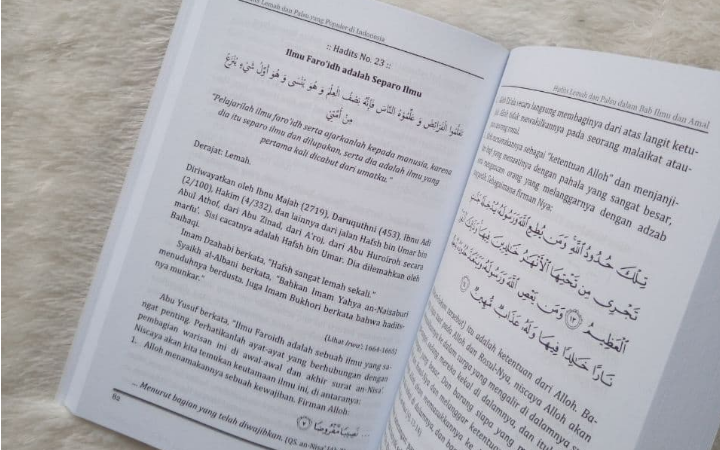 Lemah dan Palsu yang Populer di Indonesia
:: Hadits No. 23 ::
Ilmu Faro'idh adalah Separo Ilmu
تَعَلَّمُوا الْفَرَائِضَ وَ عَلِّمُوهُ النَّاسَ فَإِنَّهُ نِصْفُ الْعِلْمِ وَ هُوَ يُنْسَى وَ هُوَ أَوَّلُ شَيْءٍ يُنْزَعُ
مِنْ أُمَّتِي
"Pelajarilah ilmu faro'idh serta ajarkanlah kepada manusia, karena
dia itu separo ilmu dan dilupakan, serta dia adalah ilmu yang
pertama kali dicabut dari umatku."
Derajat: Lemah.
Diriwayatkan oleh Ibnu Majah (2719), Daruquthni (453), Ibnu Adi
(2/100), Hakim (4/332), dan lainnya dari jalan Hafsh bin Umar bin
Abul Athof, dari Abu Zinad, dari A'roj, dari Abu Huroiroh secara
marfu'. Sisi cacatnya adalah Hafsh bin Umar. Dia dilemahkan oleh
Baihaqi.
Imam Dzahabi berkata, "Hafsh sangat lemah sekali."
Syaikh al-Albani berkata, "Bahkan Imam Yahya an-Naisaburi
menuduhnya berdusta. Juga Imam Bukhori berkata bahwa hadits-
nya munkar."
(Lihat Irwa': 1664-1665)
Abu Yusuf berkata, "Ilmu Faroidh adalah sebuah ilmu yang sa-
ngat penting. Perhatikanlah ayat-ayat yang berhubungan dengan
pembagian warisan ini di awal-awal dan akhir surat an-Nisa'.
Niscaya akan kita temukan keutamaan ilmu ini, di antaranya:
1. Alloh menamakannya sebuah kewajiban. Firman Alloh:
نَصِيبًا مَّفْرُوضًا
... Menurut bagian yang telah diwajibkan. (QS. an-Nisa'
82
Hadits Lemah dan Palsu dalam Bab Ilmu dan Amal
secara langsung membaginya dari atas langit ketu-
tidak mewakilkannya pada seorang malaikat atau-
sebagai "ketentuan Alloh" dan menjanji-
bagi yang mentaatinya dengan pahala yang sangat besar,
orang yang melanggarnya dengan adzab
Sebagaimana firman-Nya:
تِلْكَ حُدُودُ اللَّهِ وَمَن يُطِعِ اللَّهَ وَرَسُولَهُ يُدْخِلْهُ جَنَّاتٍ
تَجْرِي مِن تَحْتِهَا الْأَنْهَارُ خَالِدِينَ فِيهَا وَذَٰلِكَ الْفَوْزُ
الْعَظِيمُ ١٣ وَمَن يَعْصِ اللَّهَ وَرَسُولَهُ وَيَتَعَدَّ حُدُودَهُ
نَارًا خَالِدًا فِيهَا وَلَهُ عَذَابٌ مُّهِينٌ
tersebut) itu adalah ketentuan dari Alloh. Ba-
pada Alloh dan Rosul-Nya, niscaya Alloh akan
ke dalam surga yang mengalir di dalamnya
mereka kekal di dalamnya, dan itulah
besar. Dan barang siapa yang
dan melanggar ketentuan
memasukkannya ke